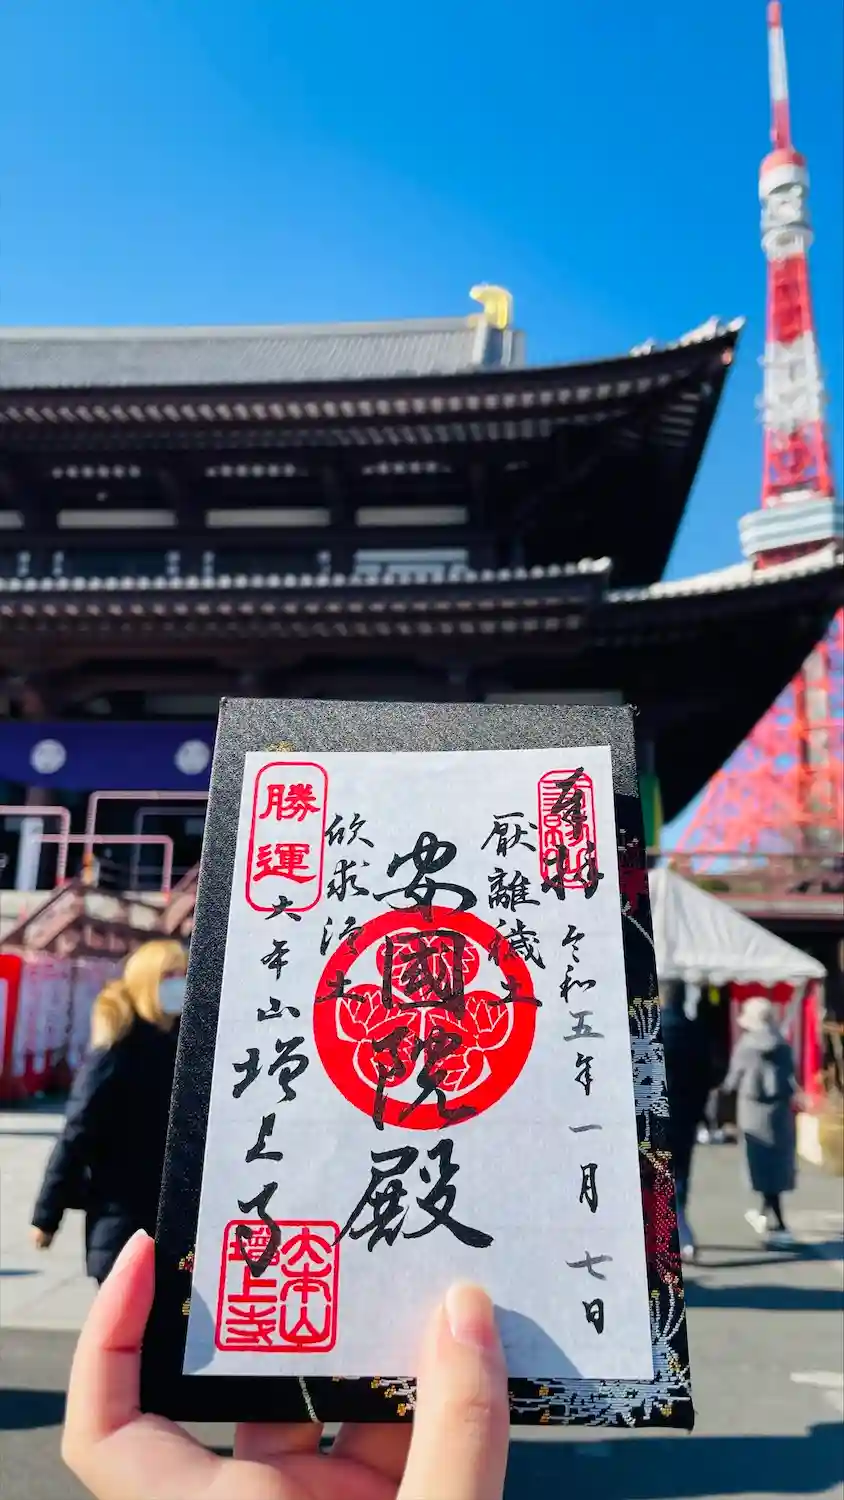 奉拝
令和五年一月七日
厭離穢土
安國院殿
欣求浄土
勝運
大本山
増上寺
大本山
増上寺